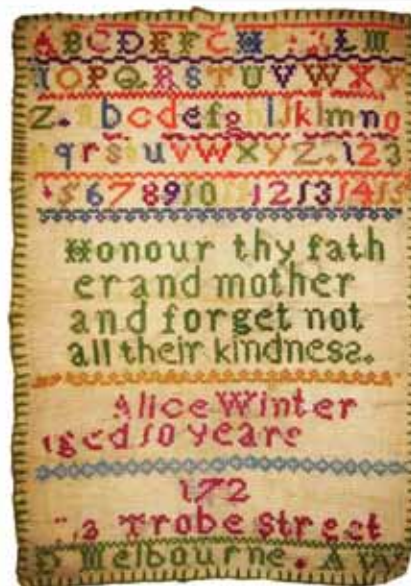 A B C D E F G H L M
N O P Q R S T U V W X Y
Z . a b c d e f g h i j k l m n o
q r s t u v w x y z . 1 2 3
4 5 6 7 8 9 10 11 12 13 14 15
Honour thy fath
er and mother
and forget not
all their kindness.
Alice Winter
aged 10 years
172
Trobe Street
D Melbourne . A W